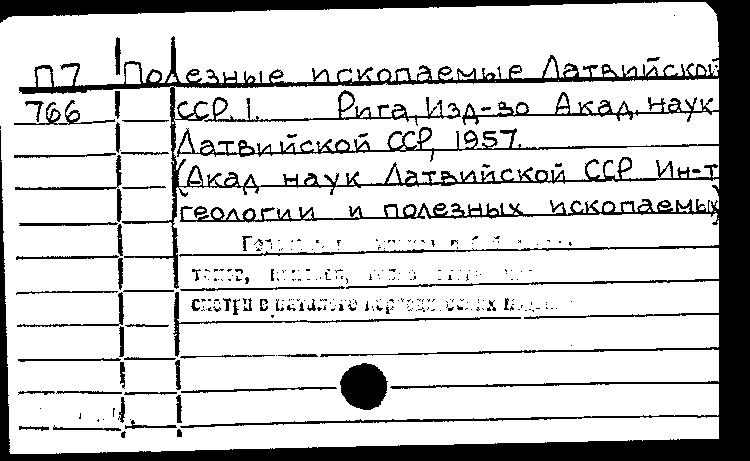 П7 Полезные ископаемые Латвийской
766 ССР. 1. Рига, Изд-во Акад. наук
Латвийской ССР, 1957.
(Акад наук Латвийской ССР Ин-т
геологии и полезных ископаемых)
смотри в каталоге